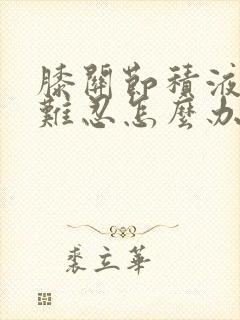 膝關節積液
難忍怎麼办
裘立華